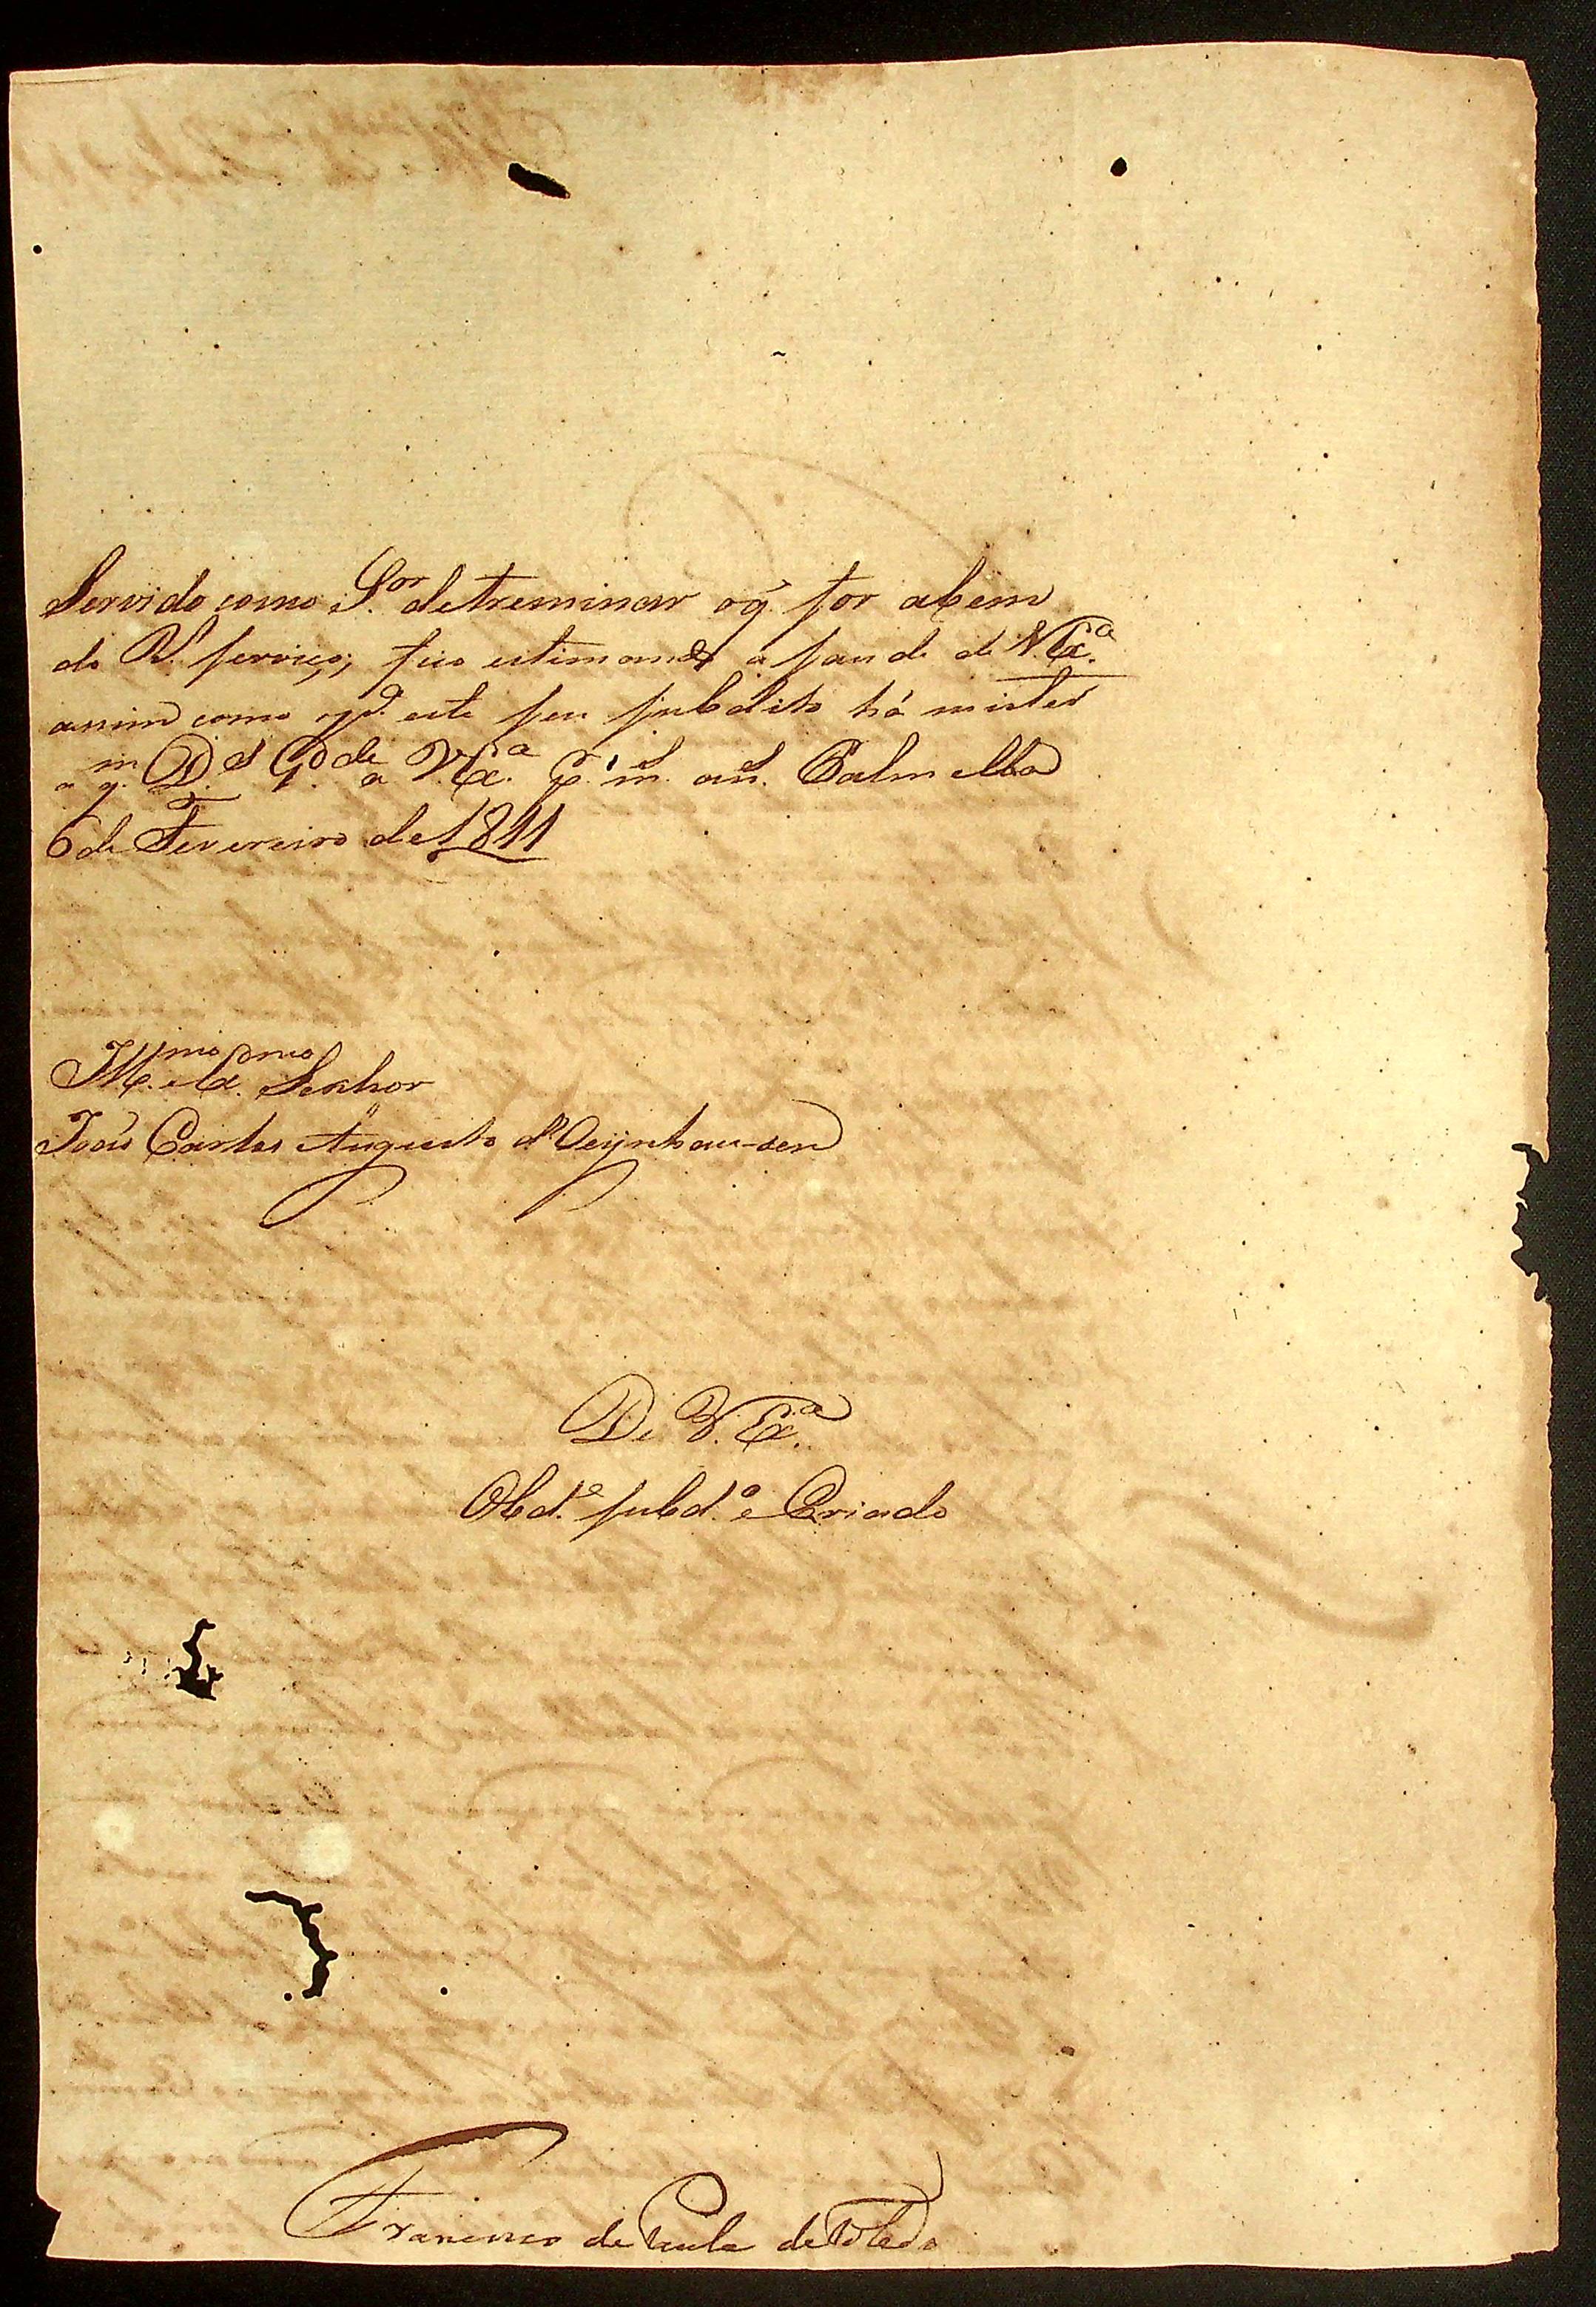 Servido como S.or detreminar oq̃ for abem
do R.l serviço; fico estimando a saude de V. Ex.a
assim como q.do este seu subdito há mister
a q.m D.s G.de a V. Ex.a p.r m.s an.s Palmella
6 de Fevereiro de 1811
Ill.mo e Ex.mo Senhor
João Carlos Augusto d'Oeÿnhausen
De V. Ex.a
Obd.e subd.o e Criado
Francisco de Paula de Toledo